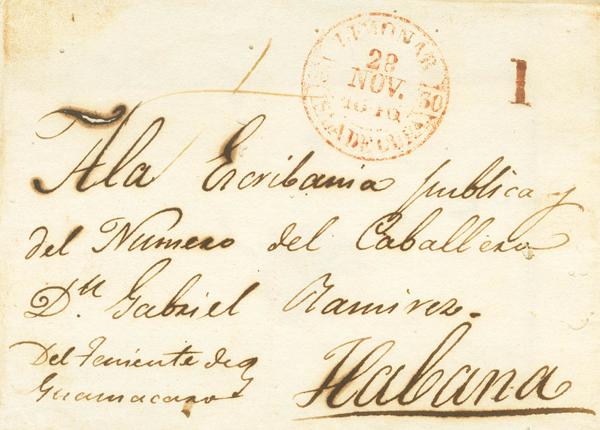 LIMONAR
28
NOV.
50
ISLA DE CUBA
1
A la Escribania publica y
del Numero del Caballero
Dn. Gabriel Ramirez.
Del Teniente de
Guamacaro
Habana